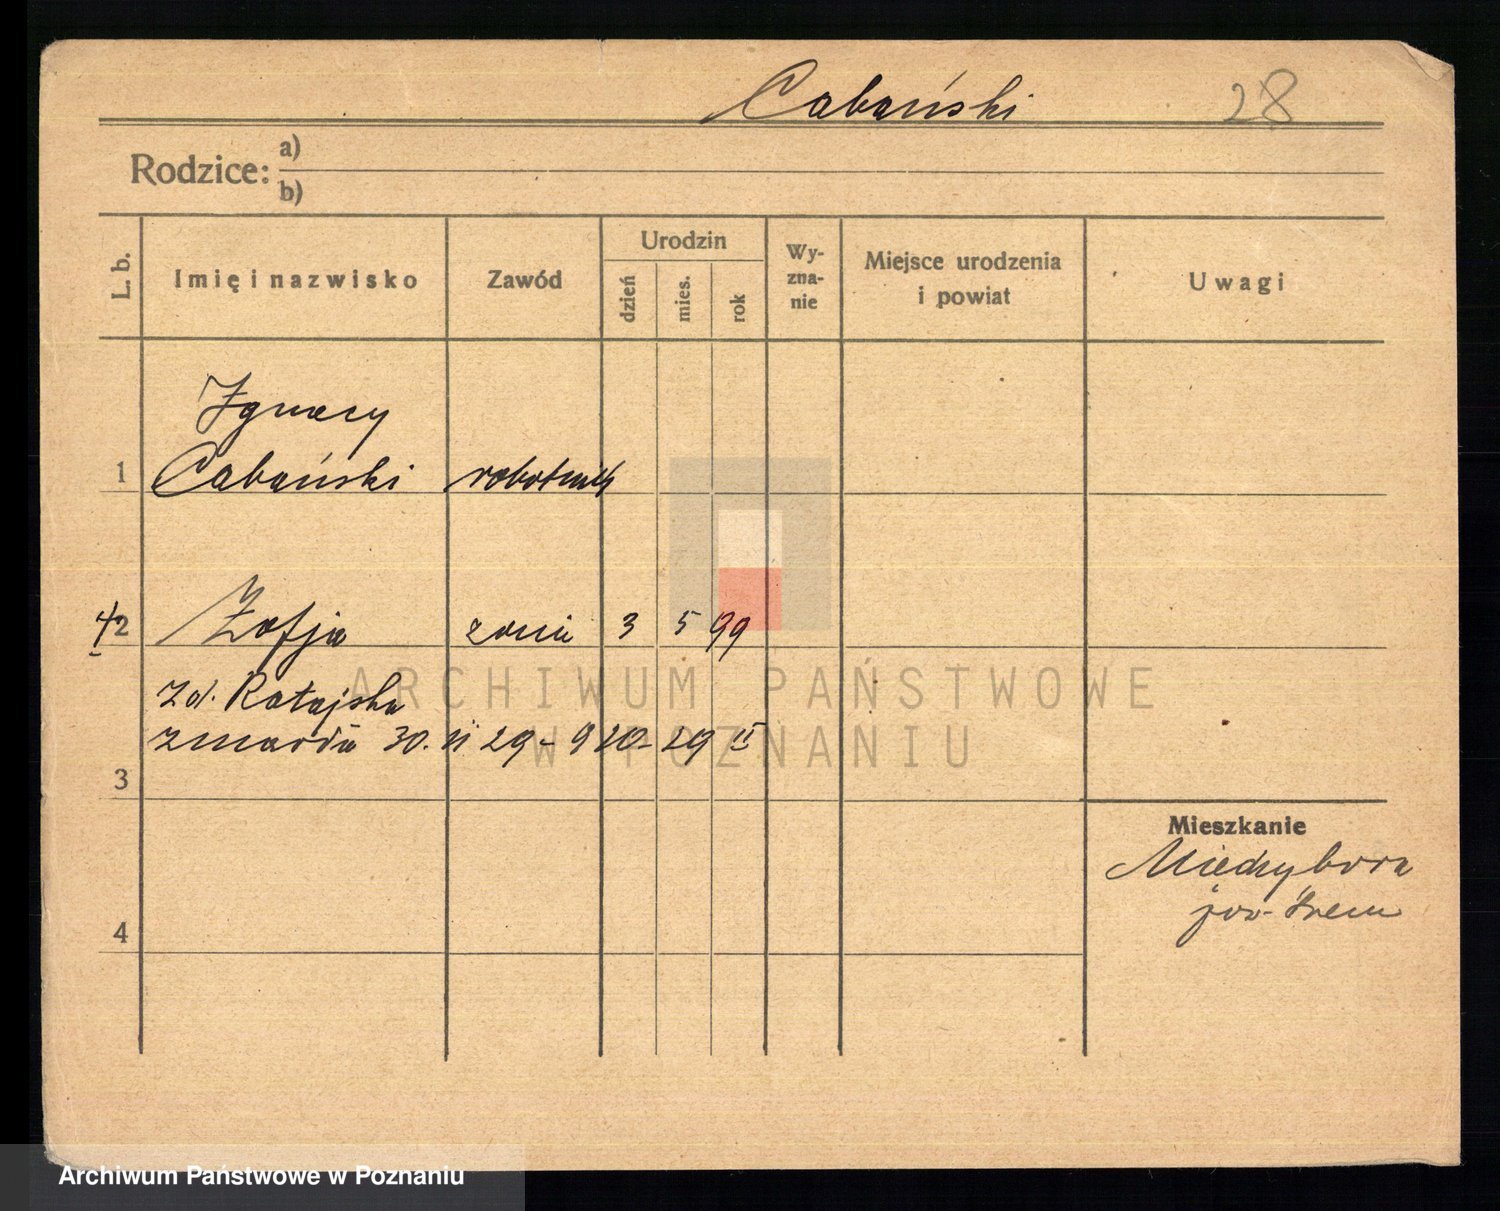 Cabański 28
Rodzice: a)
b)
L. b.
Imię i nazwisko
Zawód
Urodzin
dzień
mies.
rok
Wy-
zna-
nie
Miejsce urodzenia
i powiat
Uwagi
Ignacy
1 Cabański robotnik
2 Zofja żona 3 5 99
zd. Ratajska
zmarła 30. 29 - 920 - 29 II
3
Mieszkanie
Miedzybora
pow. Śrem
4
ARCHIWUM PAŃSTWOWE
W POZNANIU
Archiwum Państwowe w Poznaniu